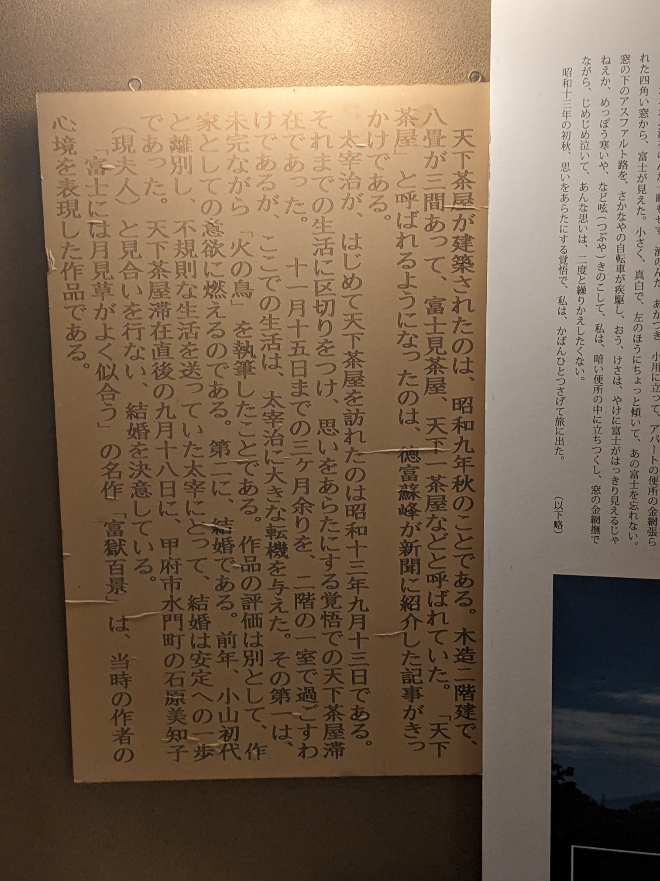 れた四角い窓から、富士が見えた。小さく、真白で、左のほうにちょっと傾いて、あの富士を忘れない。
窓の下のアスファルト路を、さかなやの自転車が疾駆し、おう、けさは、やけに富士がはっきり見えるじゃ
ねえか、めっぽう寒いや、など呟(つぶや)きのこして、私は、暗い便所の中に立ちつくし、窓の金網撫で
ながら、じめじめ泣いて、あんな思いは、二度と繰りかえしたくない。
昭和十三年の初秋、思いをあらたにする覚悟で、私は、かばんひとつさげて旅に出た。
(以下略)
天下茶屋が建築されたのは、昭和九年秋のことである。木造二階建で、
八畳が三間あって、富士見茶屋、天下一茶屋などと呼ばれていた。「天下
茶屋」と呼ばれるようになったのは、徳富蘇峰が新聞に紹介した記事がきっ
かけである。
太宰治が、はじめて天下茶屋を訪れたのは昭和十三年九月十三日である。
それまでの生活に区切りをつけ、思いをあらたにする覚悟での天下茶屋滞
在であった。十一月十五日までの三ヶ月余りを、二階の一室で過ごすわ
けであるが、ここでの生活は、太宰治に大きな転機を与えた。その第一は、
未完ながら「火の鳥」を執筆したことである。作品の評価は別として、作
家としての意欲に燃えるのである。第二に、結婚である。前年、小山初代
と離別し、不規則な生活を送っていた太宰にとって、結婚は安定への一歩
であった。天下茶屋滞在直後の九月十八日に、甲府市水門町の石原美知子
(現夫人)と見合いを行ない、結婚を決意している。
「富士には月見草がよく似合う」の名作「富嶽百景」は、当時の作者の
心境を表現した作品である。